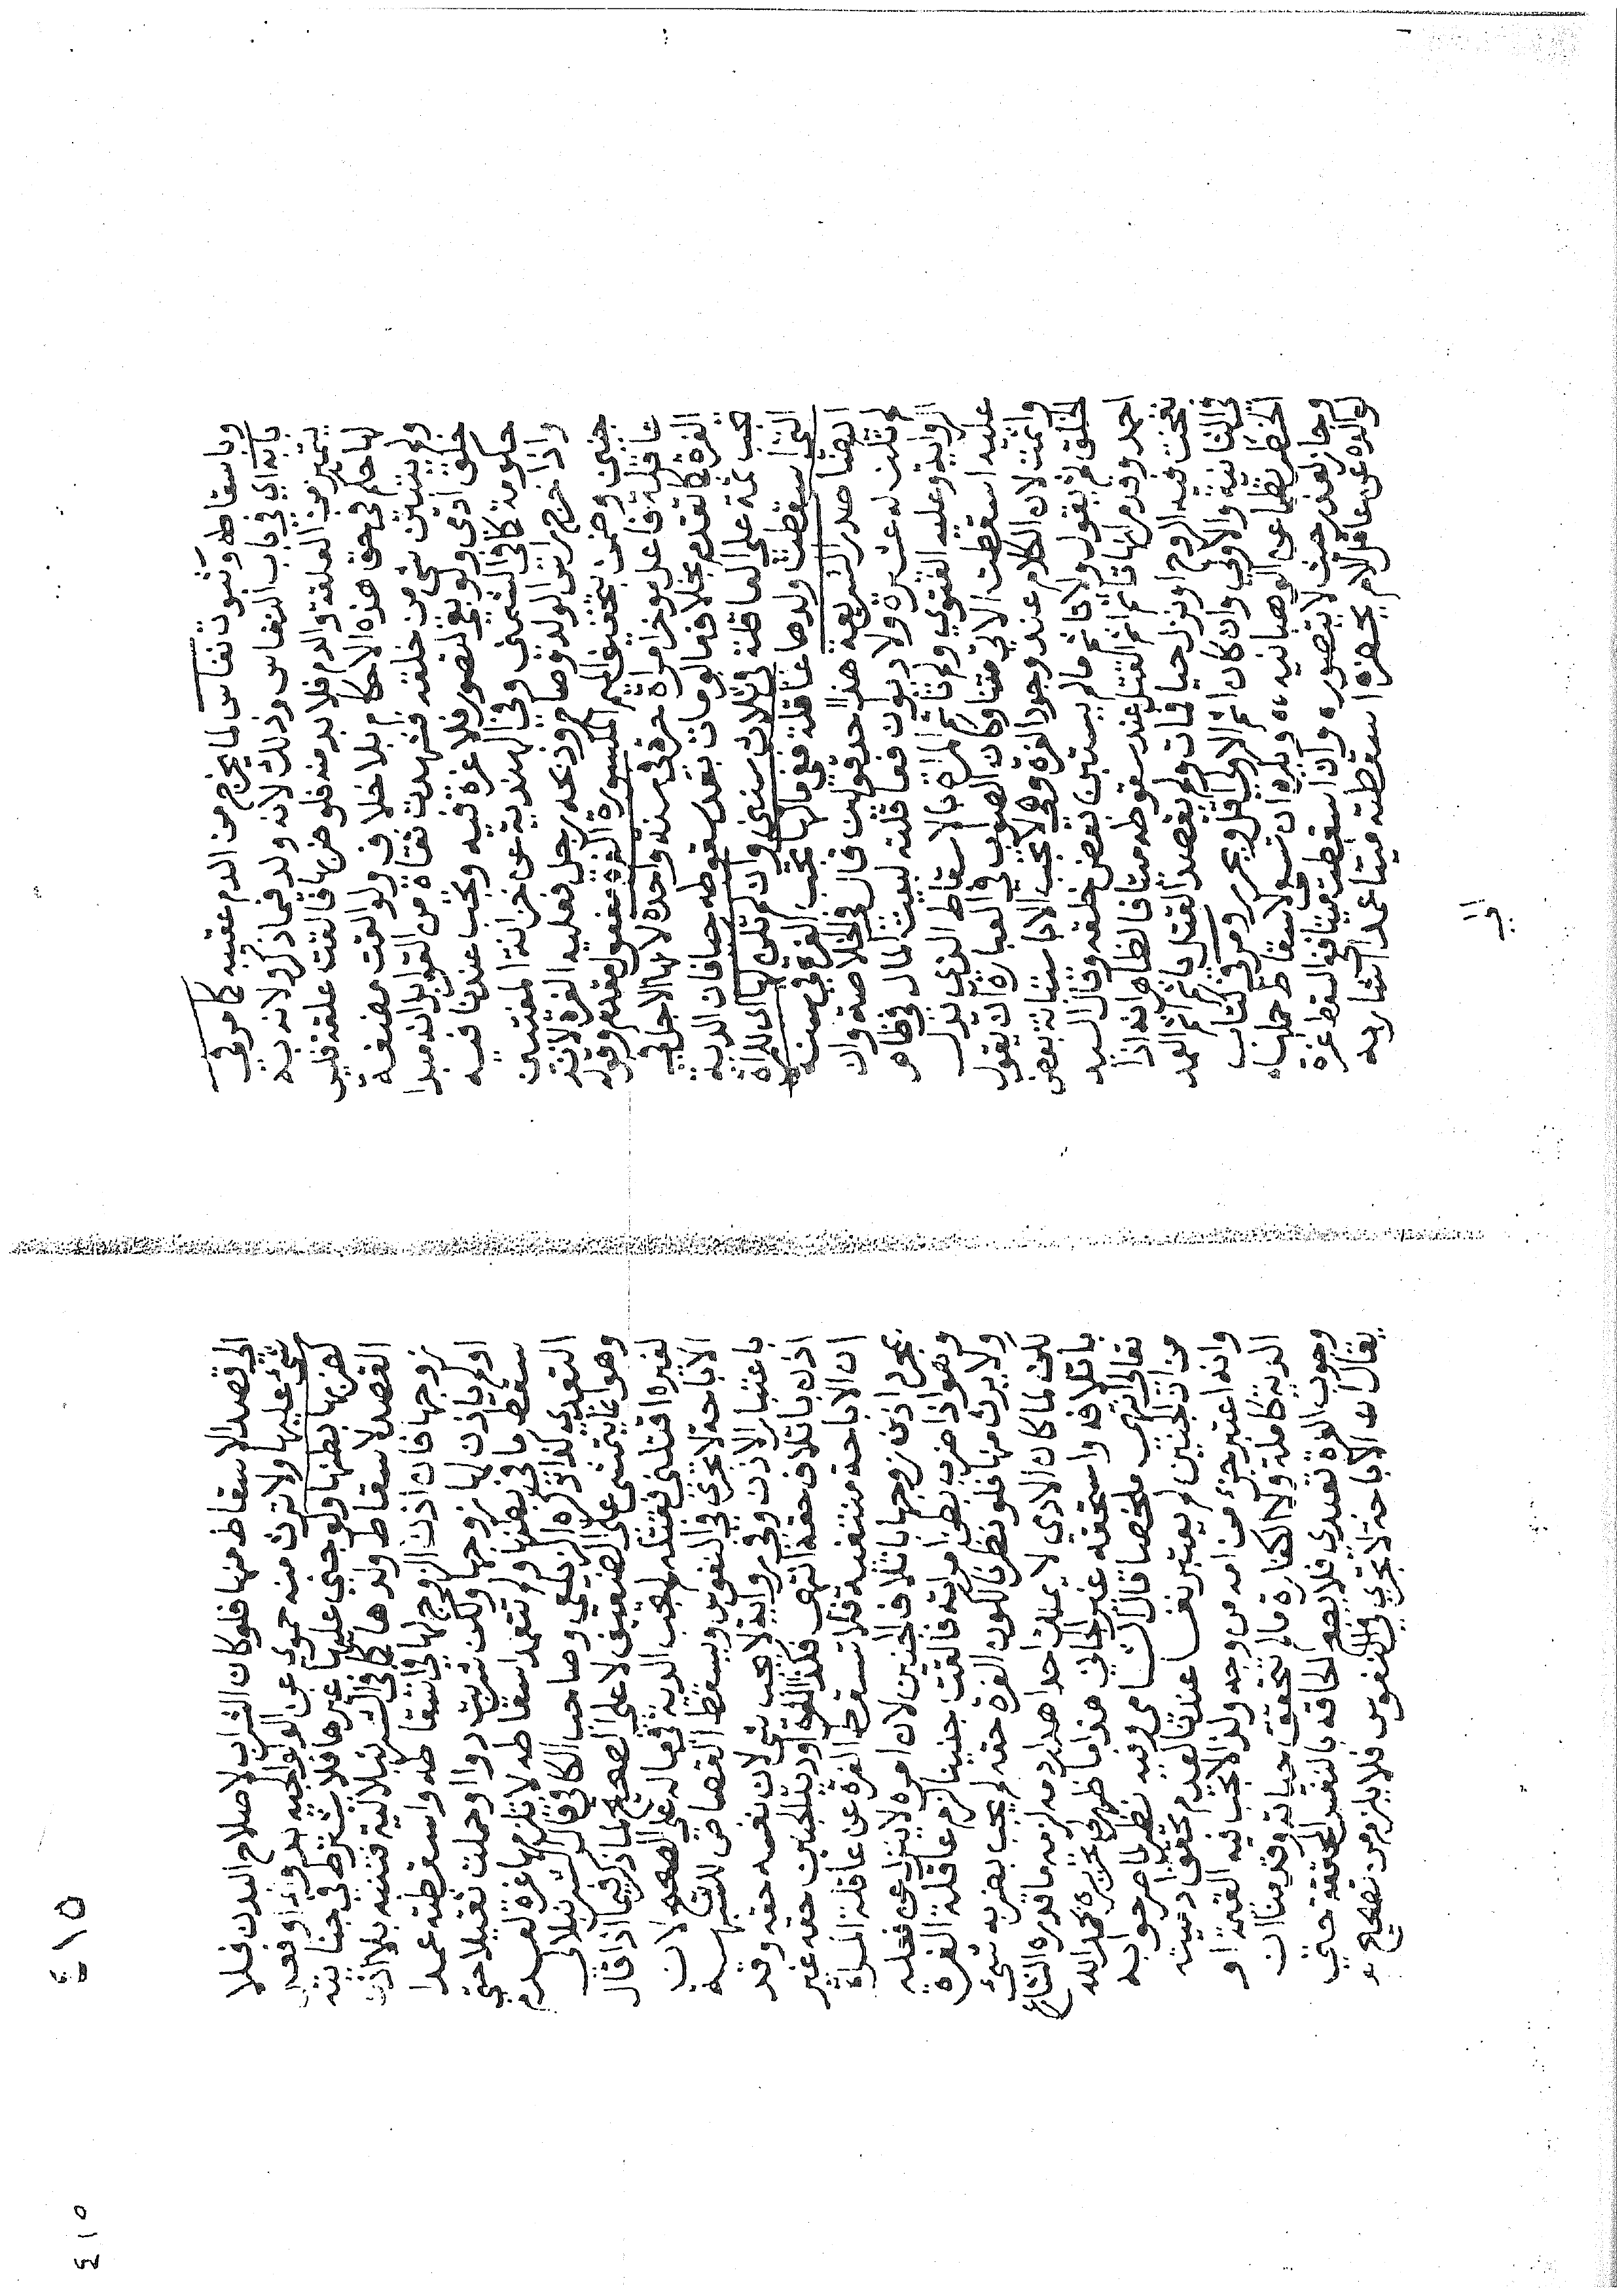 وباسقاطه وثبوت نفاس لما يخرج من الدم عقبه كما مر في
بابه اي في باب النفاس وذلك لانه ولد فيما ذكر ولانه به
يتميز من العلقة والدم فلا بد منه فلو ضربها فالقت علقة فليس
لها حكم في حق هذه الاحكام بلا خلاف ولو القت مضغة
ولم يتبين شي من خلقه فشهدت ثقاة من القوابل انه مبدا
خلق ادمي ولو بقي لتصور فلا غرة فيه وتجب عندنا فيه
حكومة كما في الشمني وفي الهندية عن خزانة المفتين
واذا خرج راس الولد وصاح وذبحه رجل فعليه الغرة لانه
جنين وضمن بتخفيف الميم المكسورة الغرة مفعول مقدم وقوله
عاقلة فاعل موخر امراة حرة في سنة واحدة لانها الاجل في
الغرة كما تقدم بخلاف ما لو مات بعد سقوطه حيا فان الدية
تجب ثمة على العاقلة في ثلاث سنين وان لم تكن لها اي للمراة
التي اسقطت ولدها عاقلة ففي مالها تجب الغرة في سنة
ايضا صدر الشريعة هذا احد قولين قال في الخلاصة وان
لم تكن له عشيرة ولا ديوان فعاقلته لبيت المال في ظاهر
الرواية وعليه الفتوي ولم تاثم المرة بالاسقاط الذي يدل
عليه اسقطت الاتي متنا وكان الصواب في العبارة ان يقول
واثمت لان الكلام عند وجود الغرة وهي لا تجب الا باستبانة بعض
الخلق ثم يقول ولا تاثم ما لم يستبن بعض خلقه وقال السيد
احمد وقد مر انها تاثم اثم القتل عند سقوطه ميتا فالظاهر انه اذا
نفخت فيه الروح او نزل حيا فمات ولم تقصد القتل تاثم اثم العمد
في الثانية والاولي وان كان اثم الاولي اقل ويحرر ومر في كتاب
الحظر نظما عن الوهبانية ،، ويكره ان تسقى لاسقاط حملها
وجاز لعذر حيث لا يتصور ، وان اسقطت ميتا ففي السقط غرة
لوالده عن عاقل الام تحضر ، اسقطته ميتا عمدا بشاربه
٤١٥
اي قصد الاسقاط منها فلو كان الشراب لاصلاح البدن فلا
شئ عليها ولا ترث منه حموي عن الولوالجية بدواء او فعل
كضربها بطنها ولو جني عليها غيرها فلا يشترط في جنايته
القصد لاسقاط ولدها كما في الشرنبلالية فتنبه بلا اذن
زوجها فان اذن الزوج لها في اسقاطه واسقطته عمدا
او لم ياذن لها زوجها ولكن شربت دواا وحملت ثقيلا حتي
سقط ما في بطنها ولم تتعمد اسقاطه لا تلزمها غرة لعدم
التعدي كذا ذكره الزيلعي وصاحب الكافي قال الشرنبلالي
وهو انما يتمشى علي الضعيف لا علي الصحيح لما ذكر فيما اذا قال
لغيره اقتلني فقتله تجب الدية في ماله علي الصحيح لان
الاباحة لا تجري في النفوس ويسقط القصاص للشبهة
باعتبار الاذن وفي رواية لا يجب شي لان نفسه حقه وقد
اذن باتلاف حقه انتهى فكذا الغرة او دية الجنين حقه غير
ان الاباحة منتفية فلا تسقط الغرة عن عاقلة المراة
بمجرد اذن زوجها باتلاف الجنين لان امره لا ينزل عن فعله
وهو اذا ضرب بطن امراته فالقت جنينا لزم عاقلته الغرة
ولا يرث منها فلو نظرنا لكون الغرة حقه لم يجب بضربه شئ
لكن لما كان الادمي لا يملك احد اهدار دمه لزمه ما قدره الشارع
باتلافه واستحقه غير الجاني هذا ما ظهر تحريره بحمد الله
تعالى انتهى ملخصا قال الشامي وفيه نظر لما صرحوا به
من ان الجنين لم يعتبر نفسا عندنا لعدم تحقق ادميته
وانه اعتبر جزء من امه من وجه ولذا لا تجب فيه القيمة او
الدية كاملة ولا الكفارة ما لم تتحقق حياته وقدمنا ان
وجوب الغرة تعبدي فلا يصح الحاقه بالنفس المحققة حتي
يقال ان الاباحة لا تجري في النفوس فلا يلزم من تصحيح